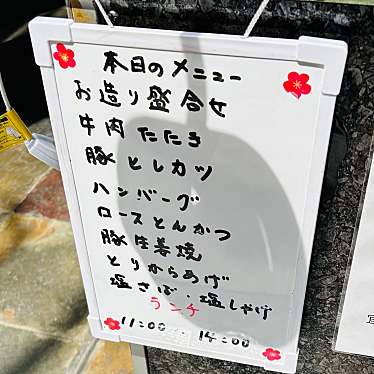 本日のメニュー
お造り盛合せ
牛肉たたき
豚ヒレカツ
ハンバーグ
ロースとんかつ
豚生姜焼
とりからあげ
塩さば・塩しゃけ
ランチ
11:00 . 14:00